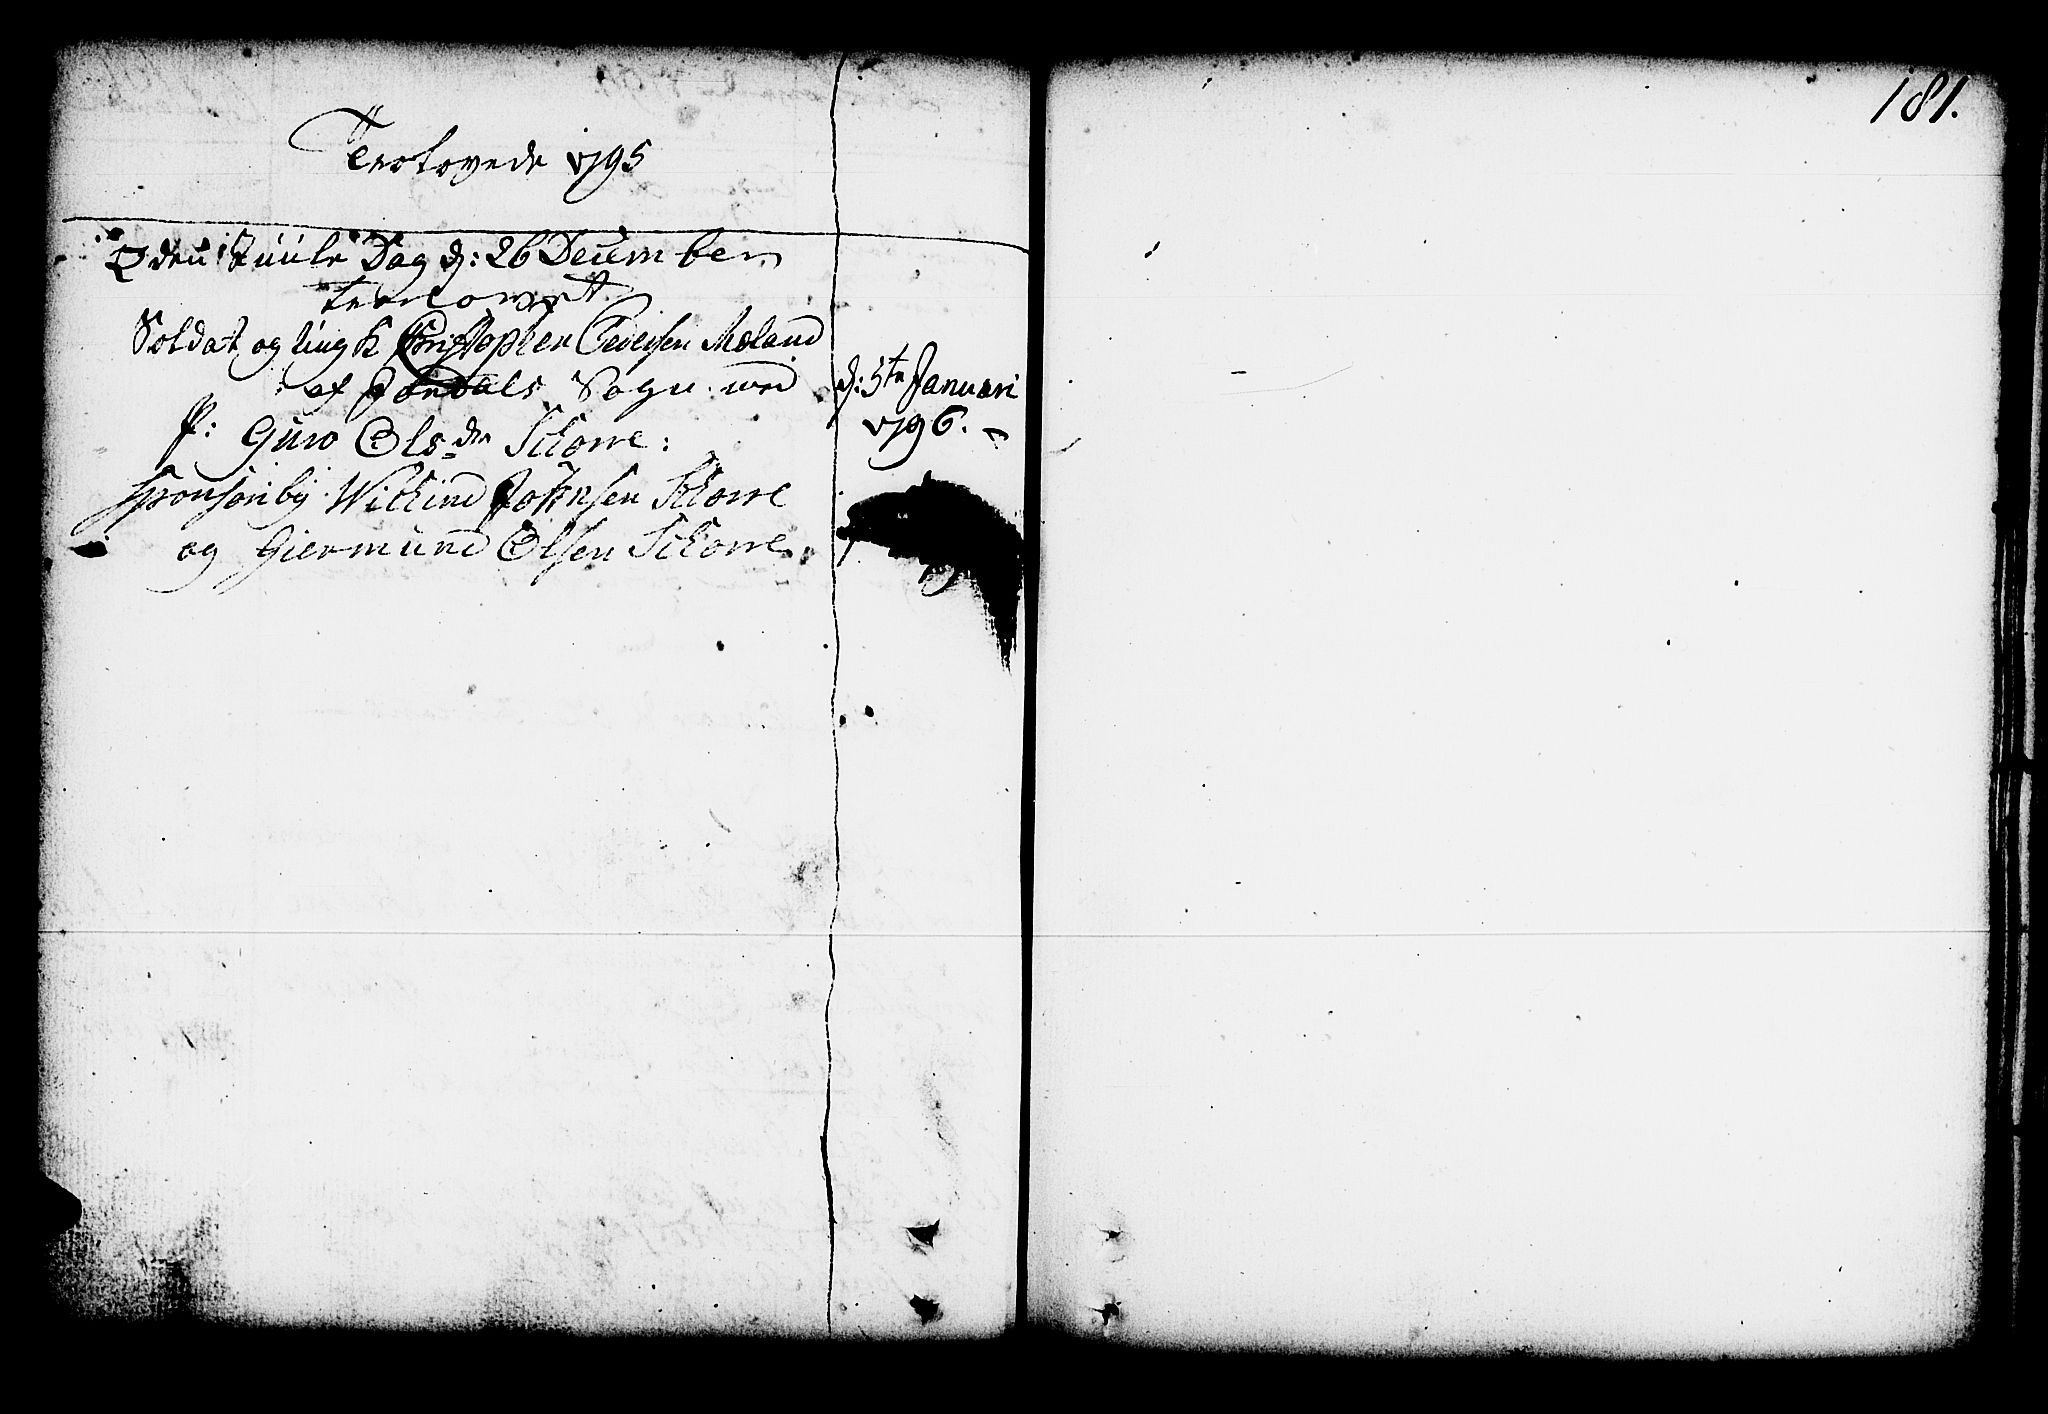 Trolovede 1795
den Juule Dag d: 26 December
trolovet
Soldat og ung K Christopher Pedersen Mæland
af Jøndals Sogn med
P: Guro Olsdr Skorre:
sponsoribg Wichind Johnsen Skorre
og Giermund Olsen Skorre
d: 5te Januari
1796.
181.